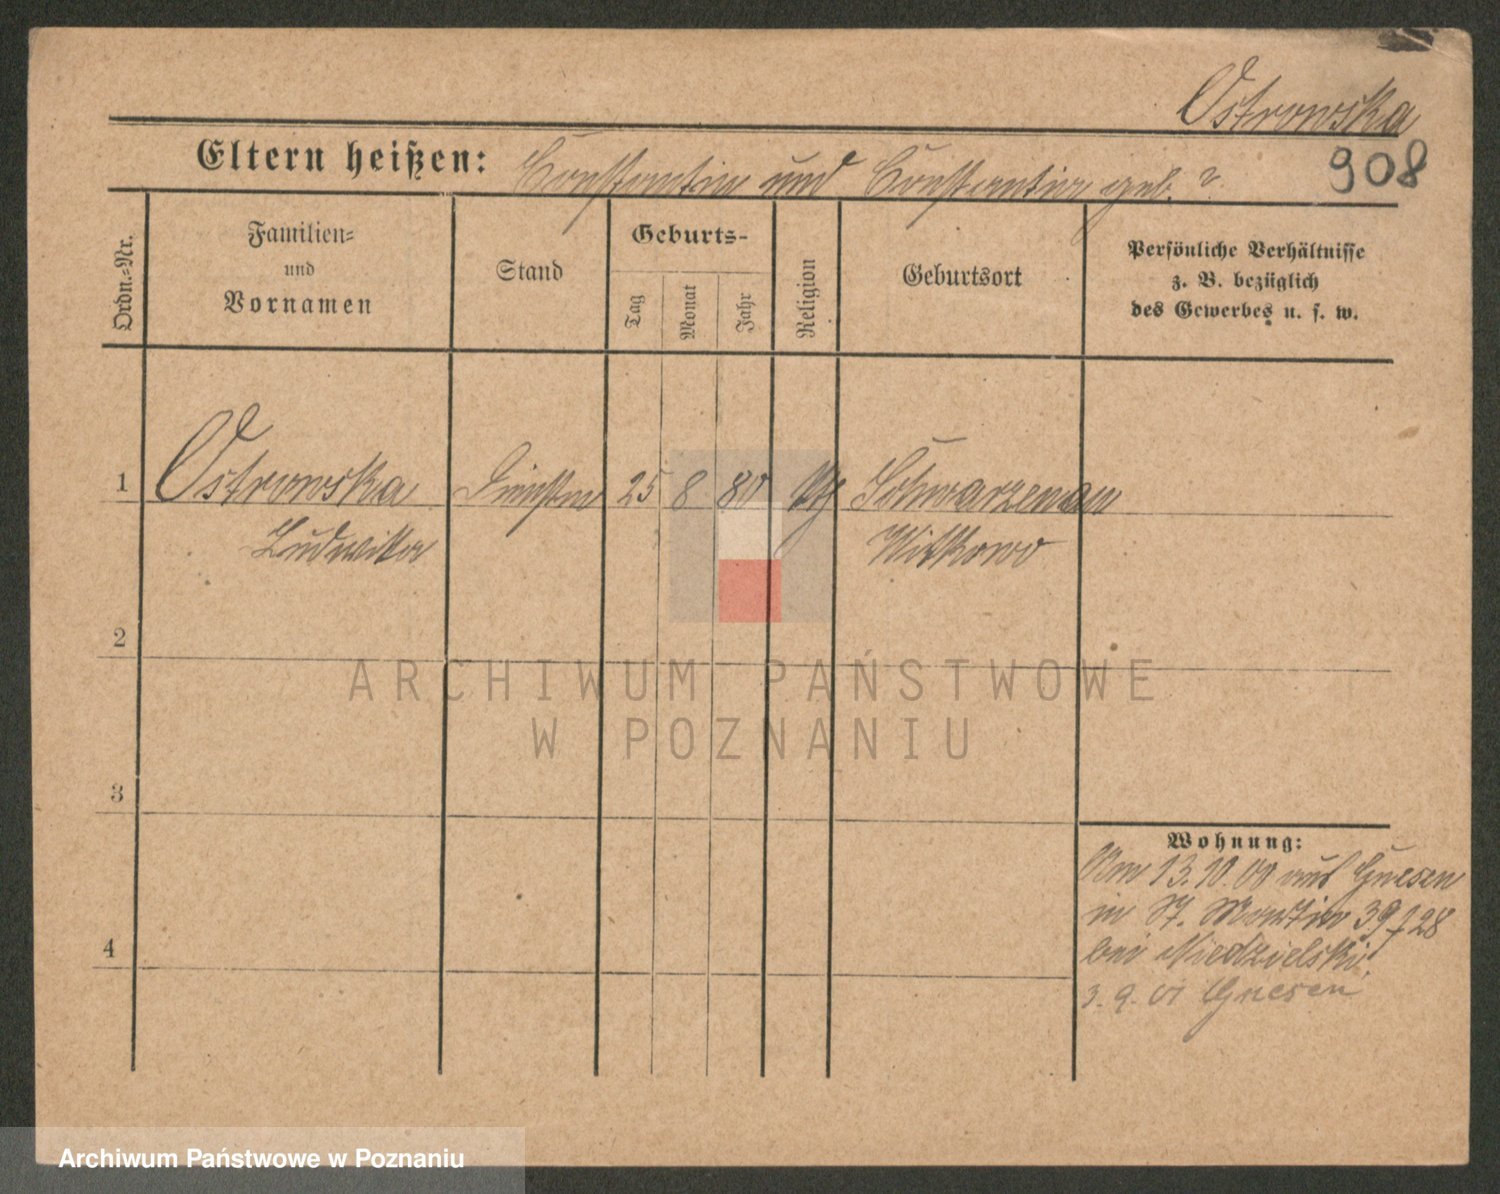 Ostrowska
908
Eltern heißen: Constantin und Constantia geb. ?
Ordn.-Nr.
Familien-
und
Vornamen
Stand
Geburts-
Tag
Monat
Jahr
Religion
Geburtsort
Persönliche Verhältnisse
z. B. bezüglich
des Gewerbes u. s. w.
1 Ostrowska 25 8 80 Schwarzenau
Ludwika Witkowo
2
3
4
Wohnung:
Am 13.10.00 aus Gnesen
in St. Martin 39 f 28
bei Niedzielski.
3.9.01 Gnesen
ARCHIWUM PAŃSTWOWE
W POZNANIU
Archiwum Państwowe w Poznaniu